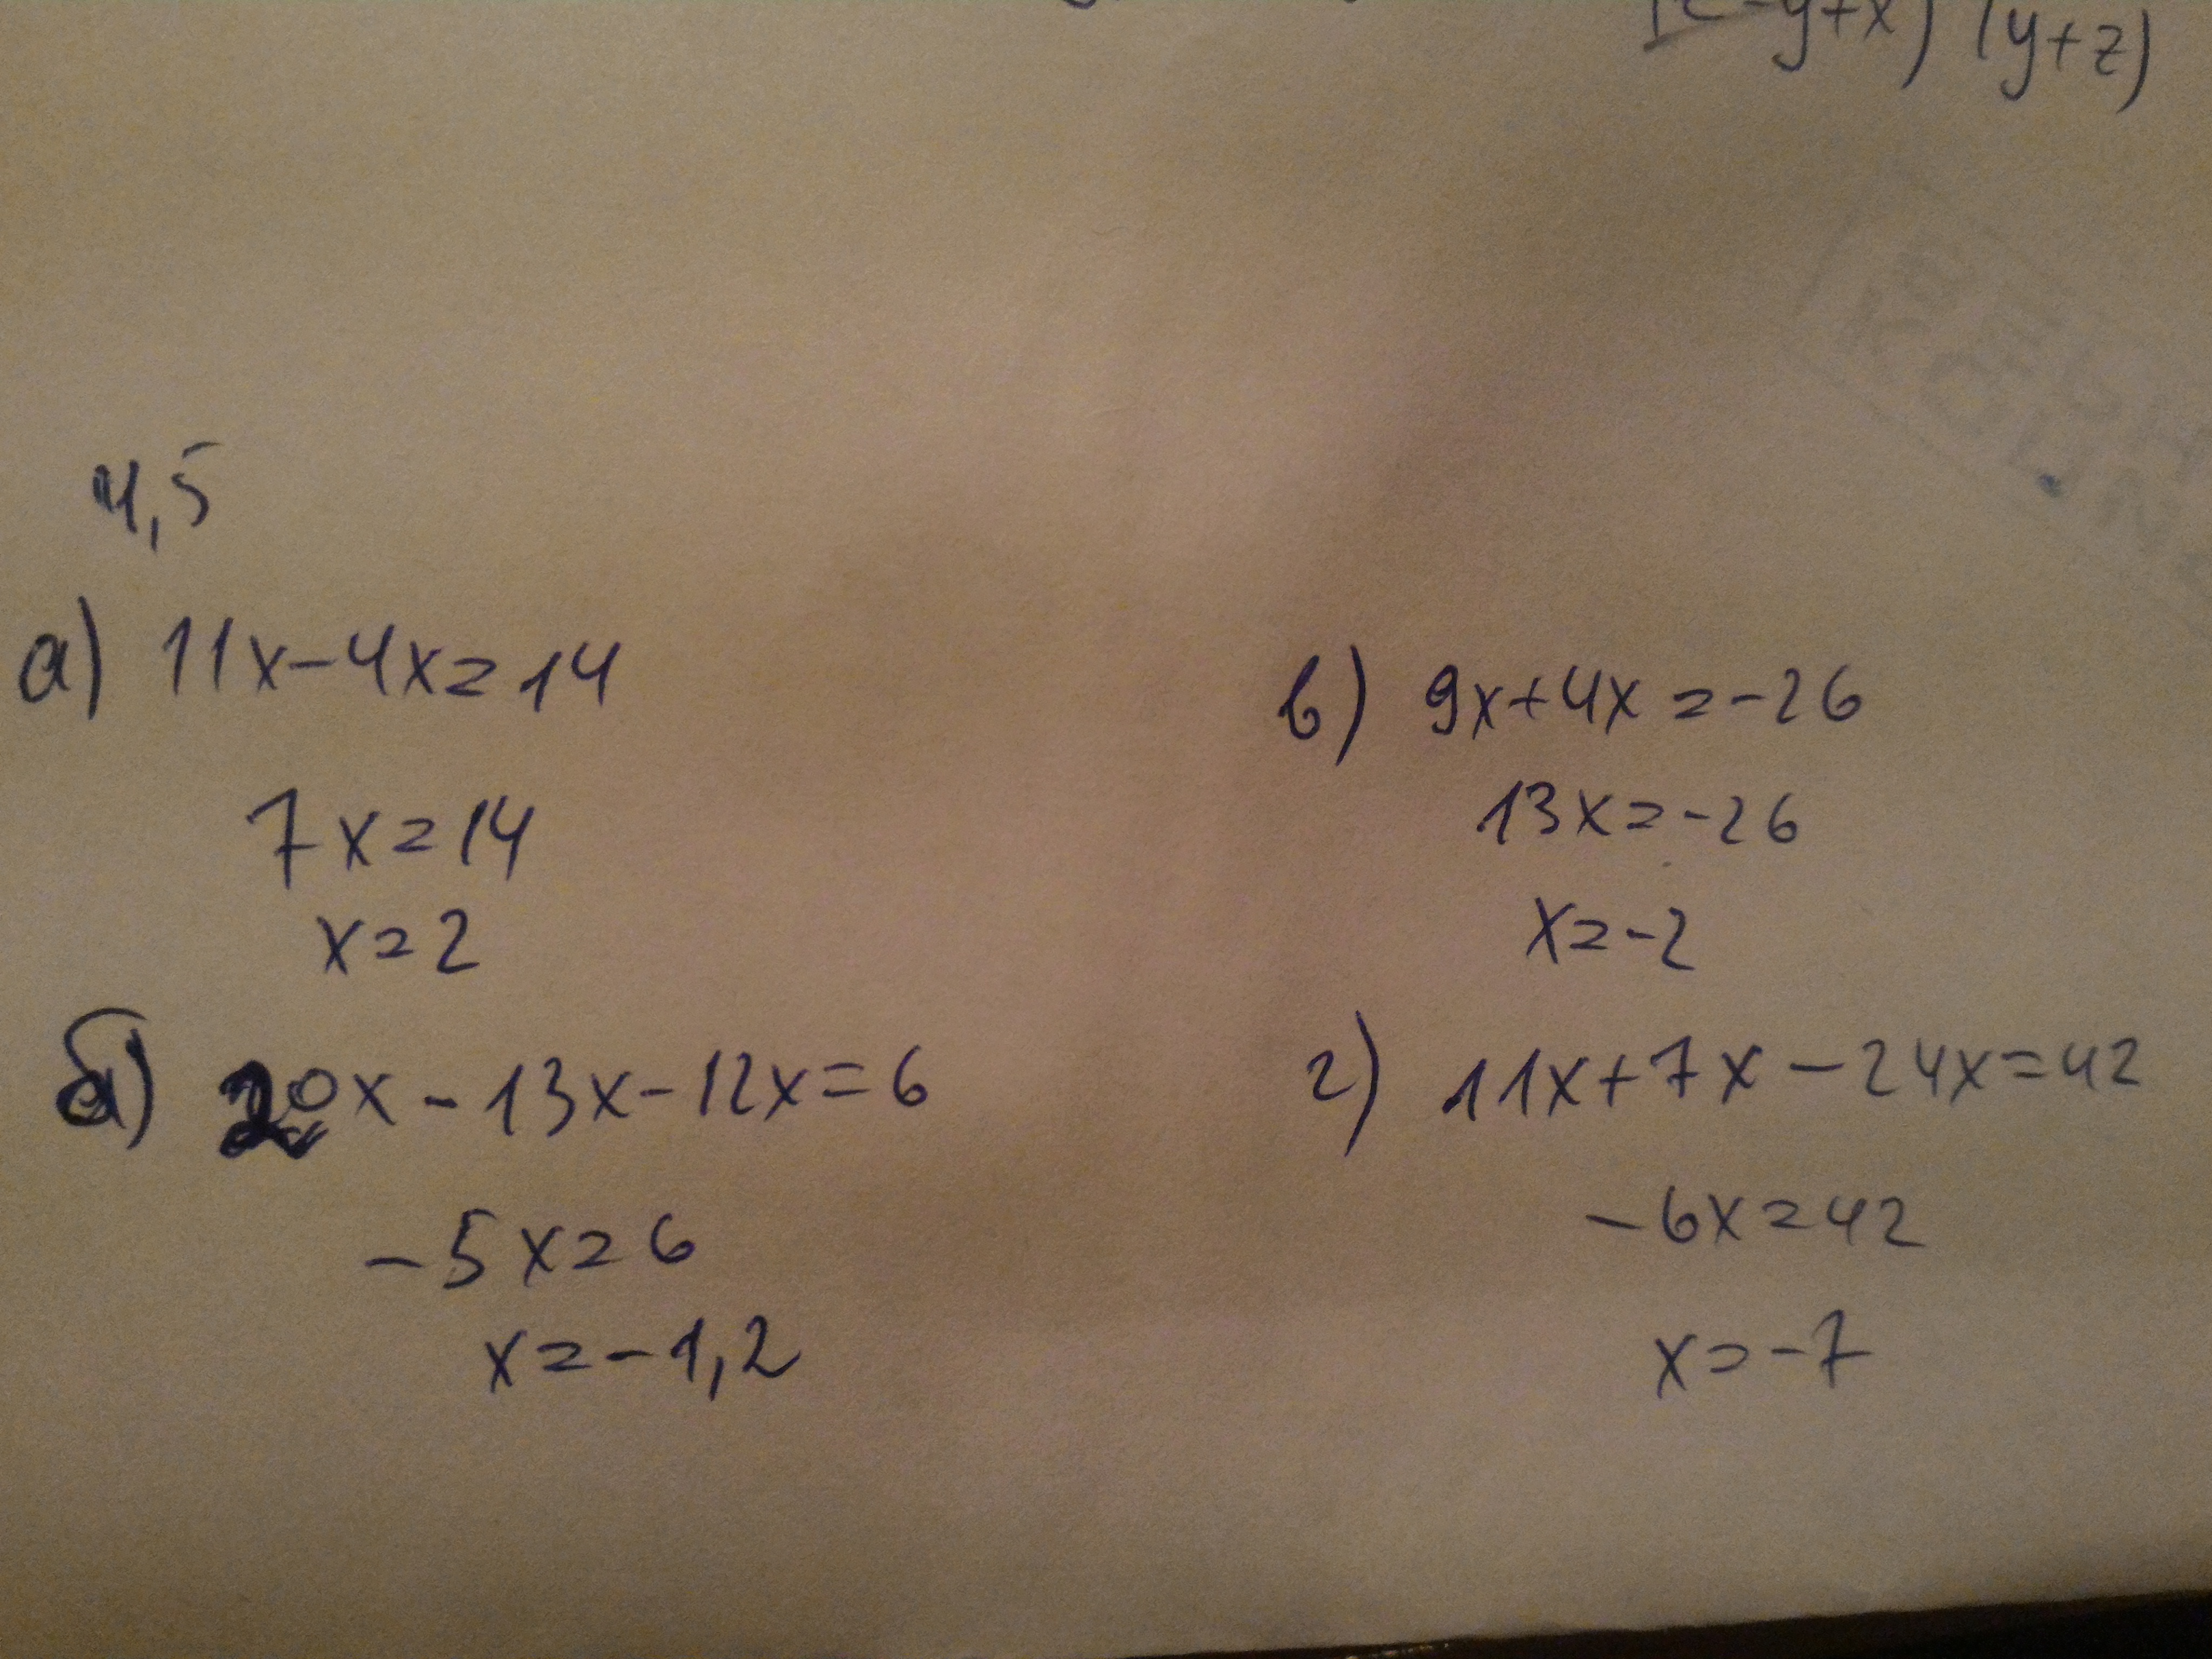 -y+x) (y+z)
4,5
а) 11x-4x=14
7x=14
x=2
б) 20x-13x-12x=6
-5x=6
x=-1,2
в) 9x+4x=-26
13x=-26
x=-2
г) 11x+7x-24x=42
-6x=42
x=-7